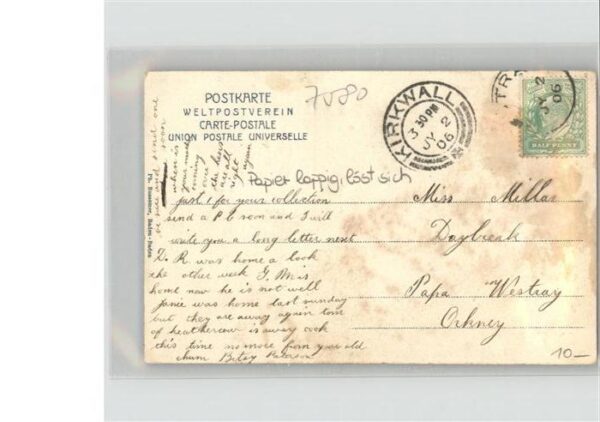 POSTKARTE
WELTPOSTVEREIN
CARTE-POSTALE
UNION POSTALE UNIVERSELLE
7080
KIRKWALL
3 30 PM
JY 2
06
JY 2
06
HALF PENNY
Papier lappig, löst sich
just 1 for your collection
send a P b soon and I will
write you a long letter next
Dr R was home a look
the other week G
home now he is not well
Janie was home last sunday
but they are away again tom
of heathercow is away cook
this time no more from your old
chum Betsy
be sure and send one
soon
when is
your
coming
over
the
are all
right
again
Miss Millar
Daybreak
Papa Westray
Orkney
10-
Baden-Baden